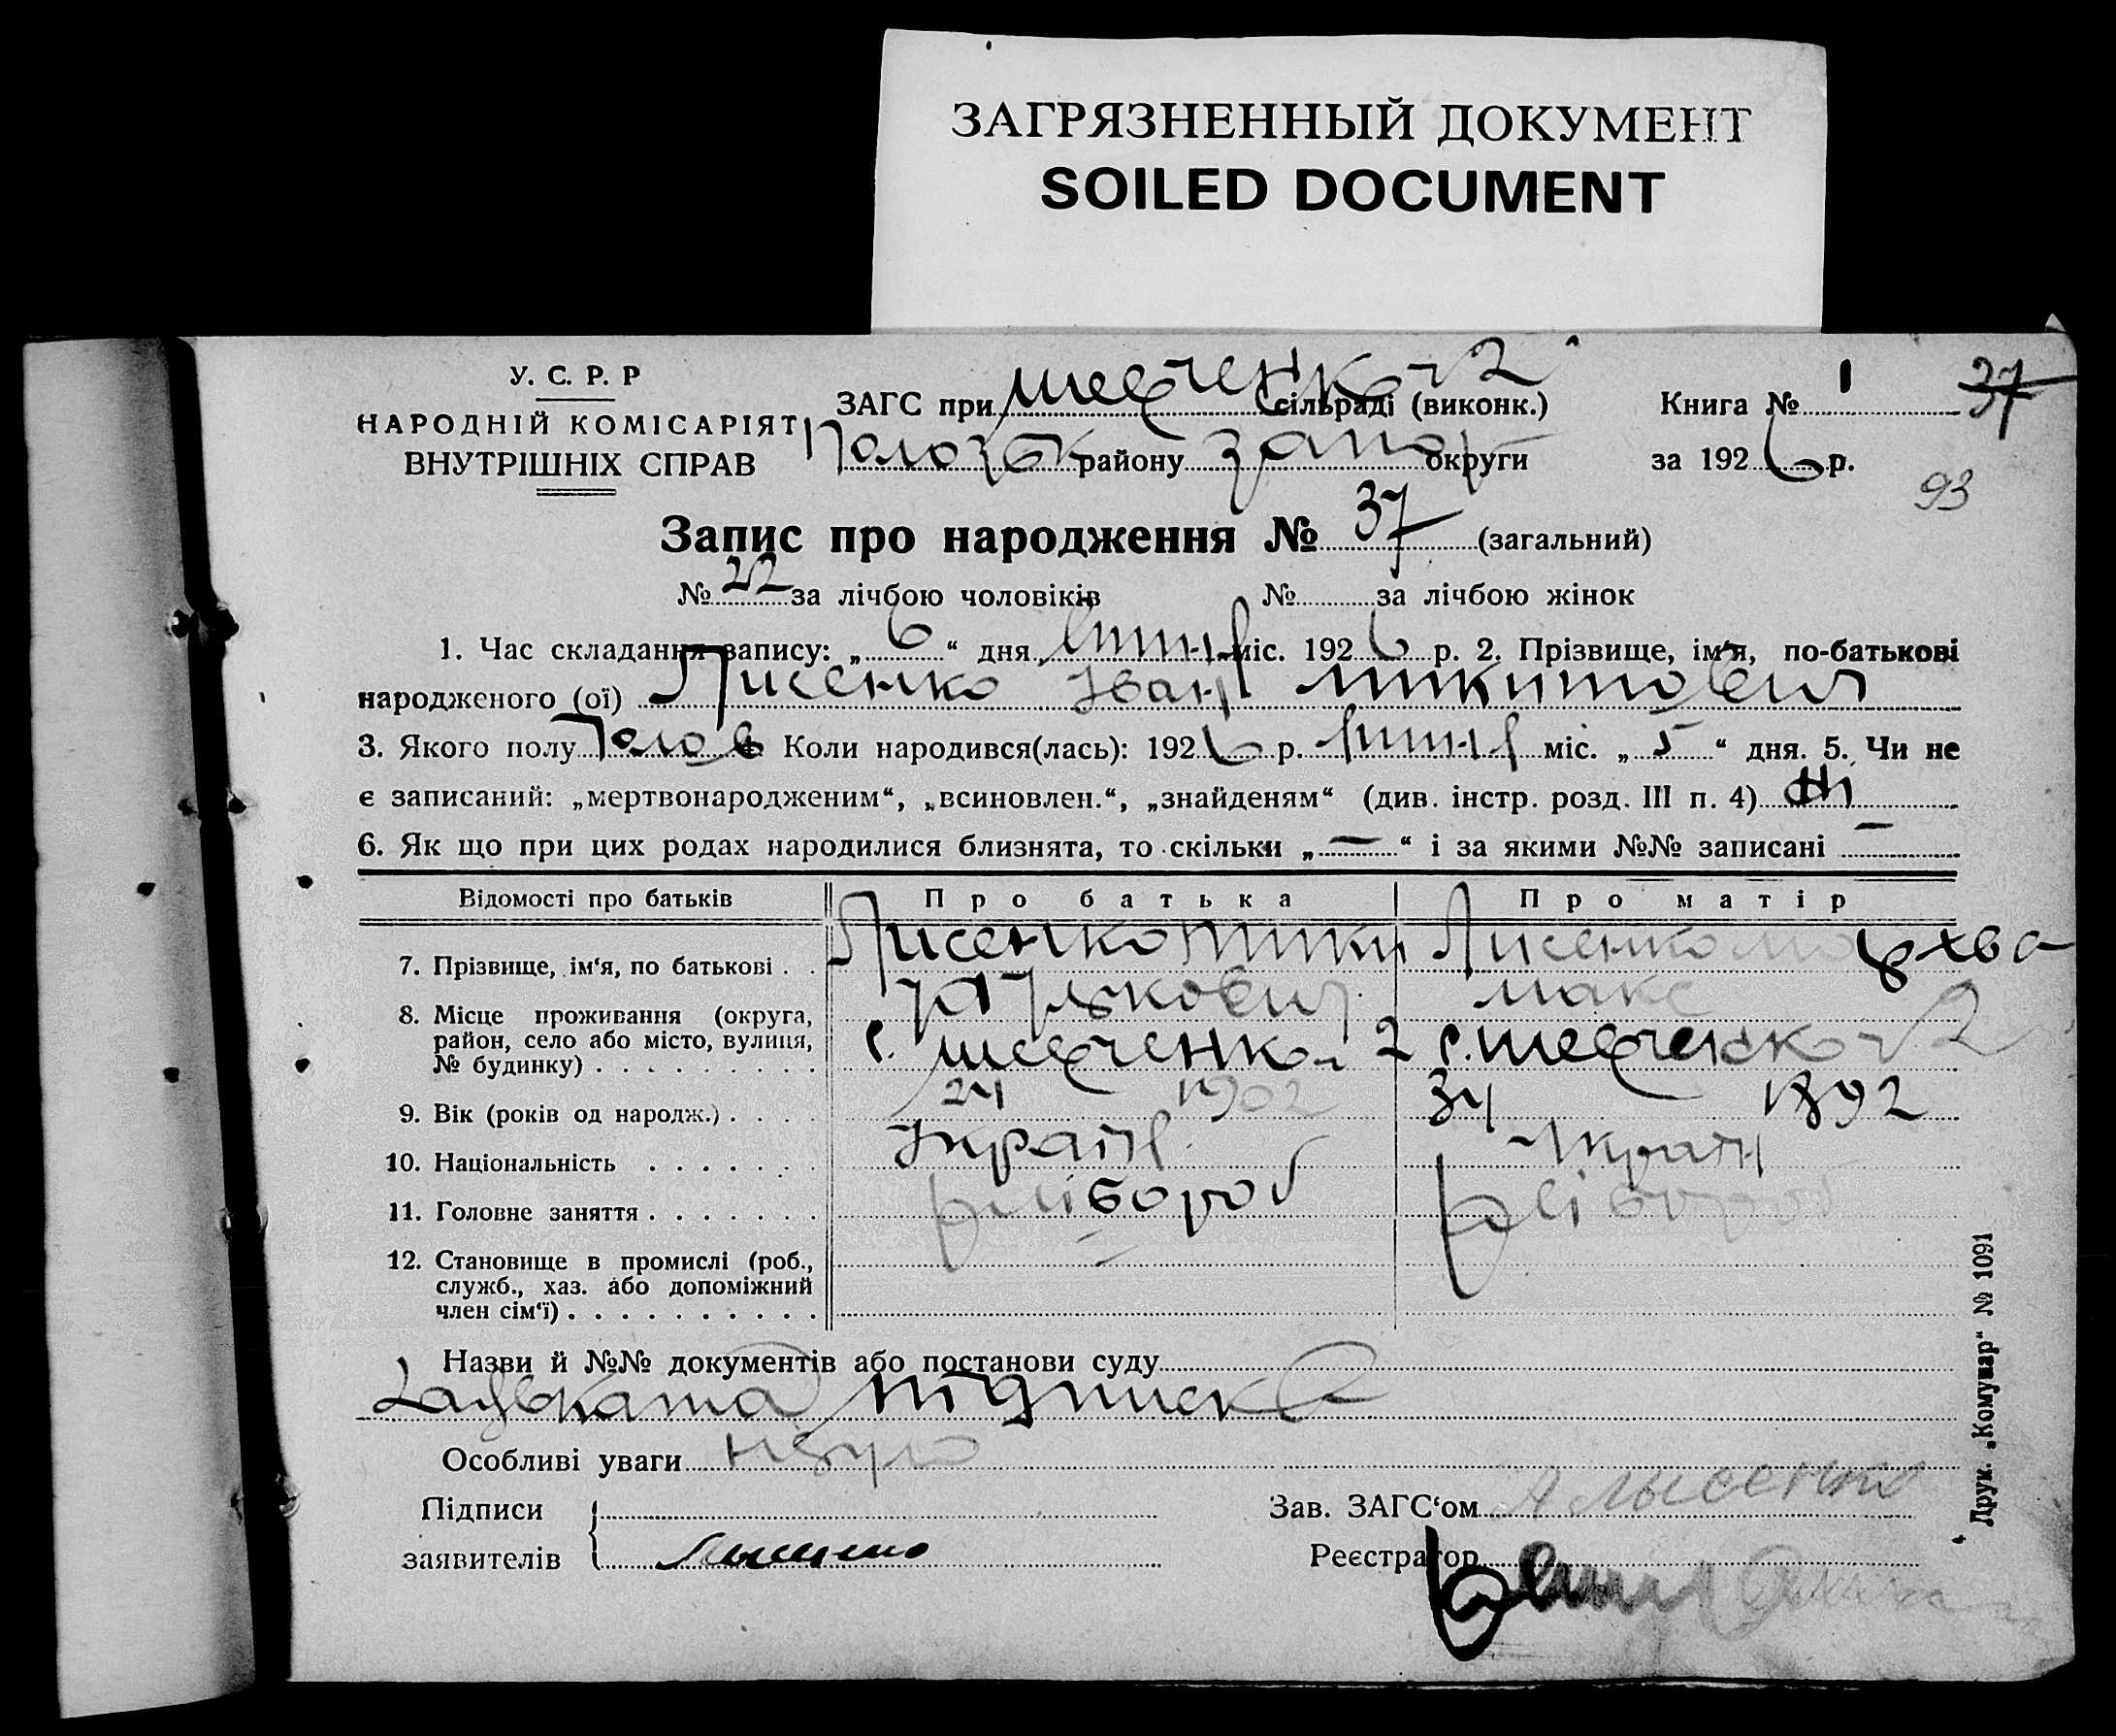 ЗАГРЯЗНЕННЫЙ ДОКУМЕНТ
SOILED DOCUMENT
У. С. Р. Р
НАРОДНІЙ КОМІСАРІЯТ
ВНУТРІШНІХ СПРАВ
ЗАГС при Шевченко 2 сільраді (виконк.)
Полог району Запор округи
Книга № 1 37
за 1926 р.
93
Запис про народження № 37 (загальний)
№ 22 за лічбою чоловіків № за лічбою жінок
1. Час складання запису: „6“ дня міс. 1926 р. 2. Прізвище, ім'я, по-батькові
народженого (ої) Лисенко Іван Микитович
3. Якого полу Чолов 4. Коли народився(лась): 1926 р. міс. „5“ дня. 5. Чи не
є записаний: „мертвонародженим“, „всиновлен.“, „знайденям“ (див. інстр. розд. III п. 4) ні
6. Як що при цих родах народилися близнята, то скільки „—“ і за якими №№ записані —
Відомості про батьків Про батька Про матір
7. Прізвище, ім'я, по батькові . . Лисенко Мики Лисенко
та Яркович Макс
8. Місце проживання (округа, район, село або місто, вулиця, № будинку) . . . . . . . . . с. Шевченко 2 с. Шевченко 2
9. Вік (років од народж.) . . . . 24 1902 34 1892
10. Національність . . . . . . . Украін Украін
11. Головне заняття . . . . . . . хлібороб хлібороб
12. Становище в промислі (роб., служб., хаз. або допоміжний член сім'ї) . . . . . . . . . .
Назви й №№ документів або постанови суду
підписка
Особливі уваги
Підписи
заявителів Лысенко
Зав. ЗАГС'ом А Лысенко
Реєстратор
Друк. „Комунар“ № 1091